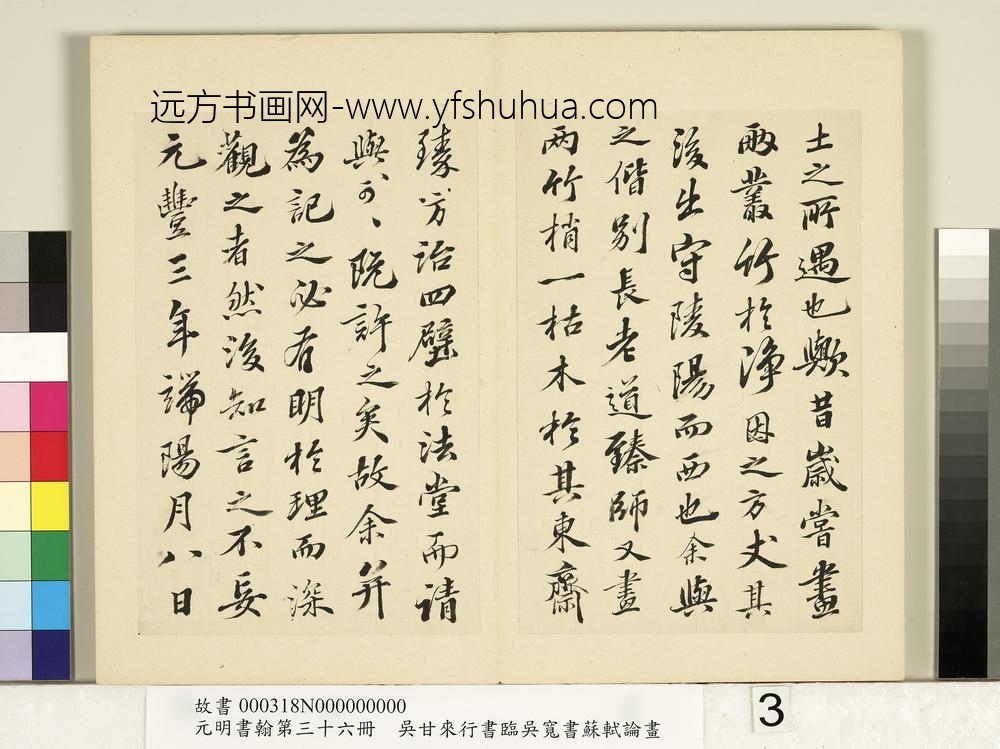 远方书画网-www.yfshuhua.com
士之所遇也歟昔歲嘗畫
兩叢竹於淨因之方丈其
後出守陵陽而西也余與
之偕別長老道臻師又畫
兩竹梢一枯木於其東齋
臻方治四壁於法堂而請
與可、既許之矣故余并
為記之必有明於理而深
觀之者然後知言之不妄
元豐三年端陽月八日
故書 000318N000000000
元明書翰第三十六冊　吳甘來行書臨吳寬書蘇軾論畫
3